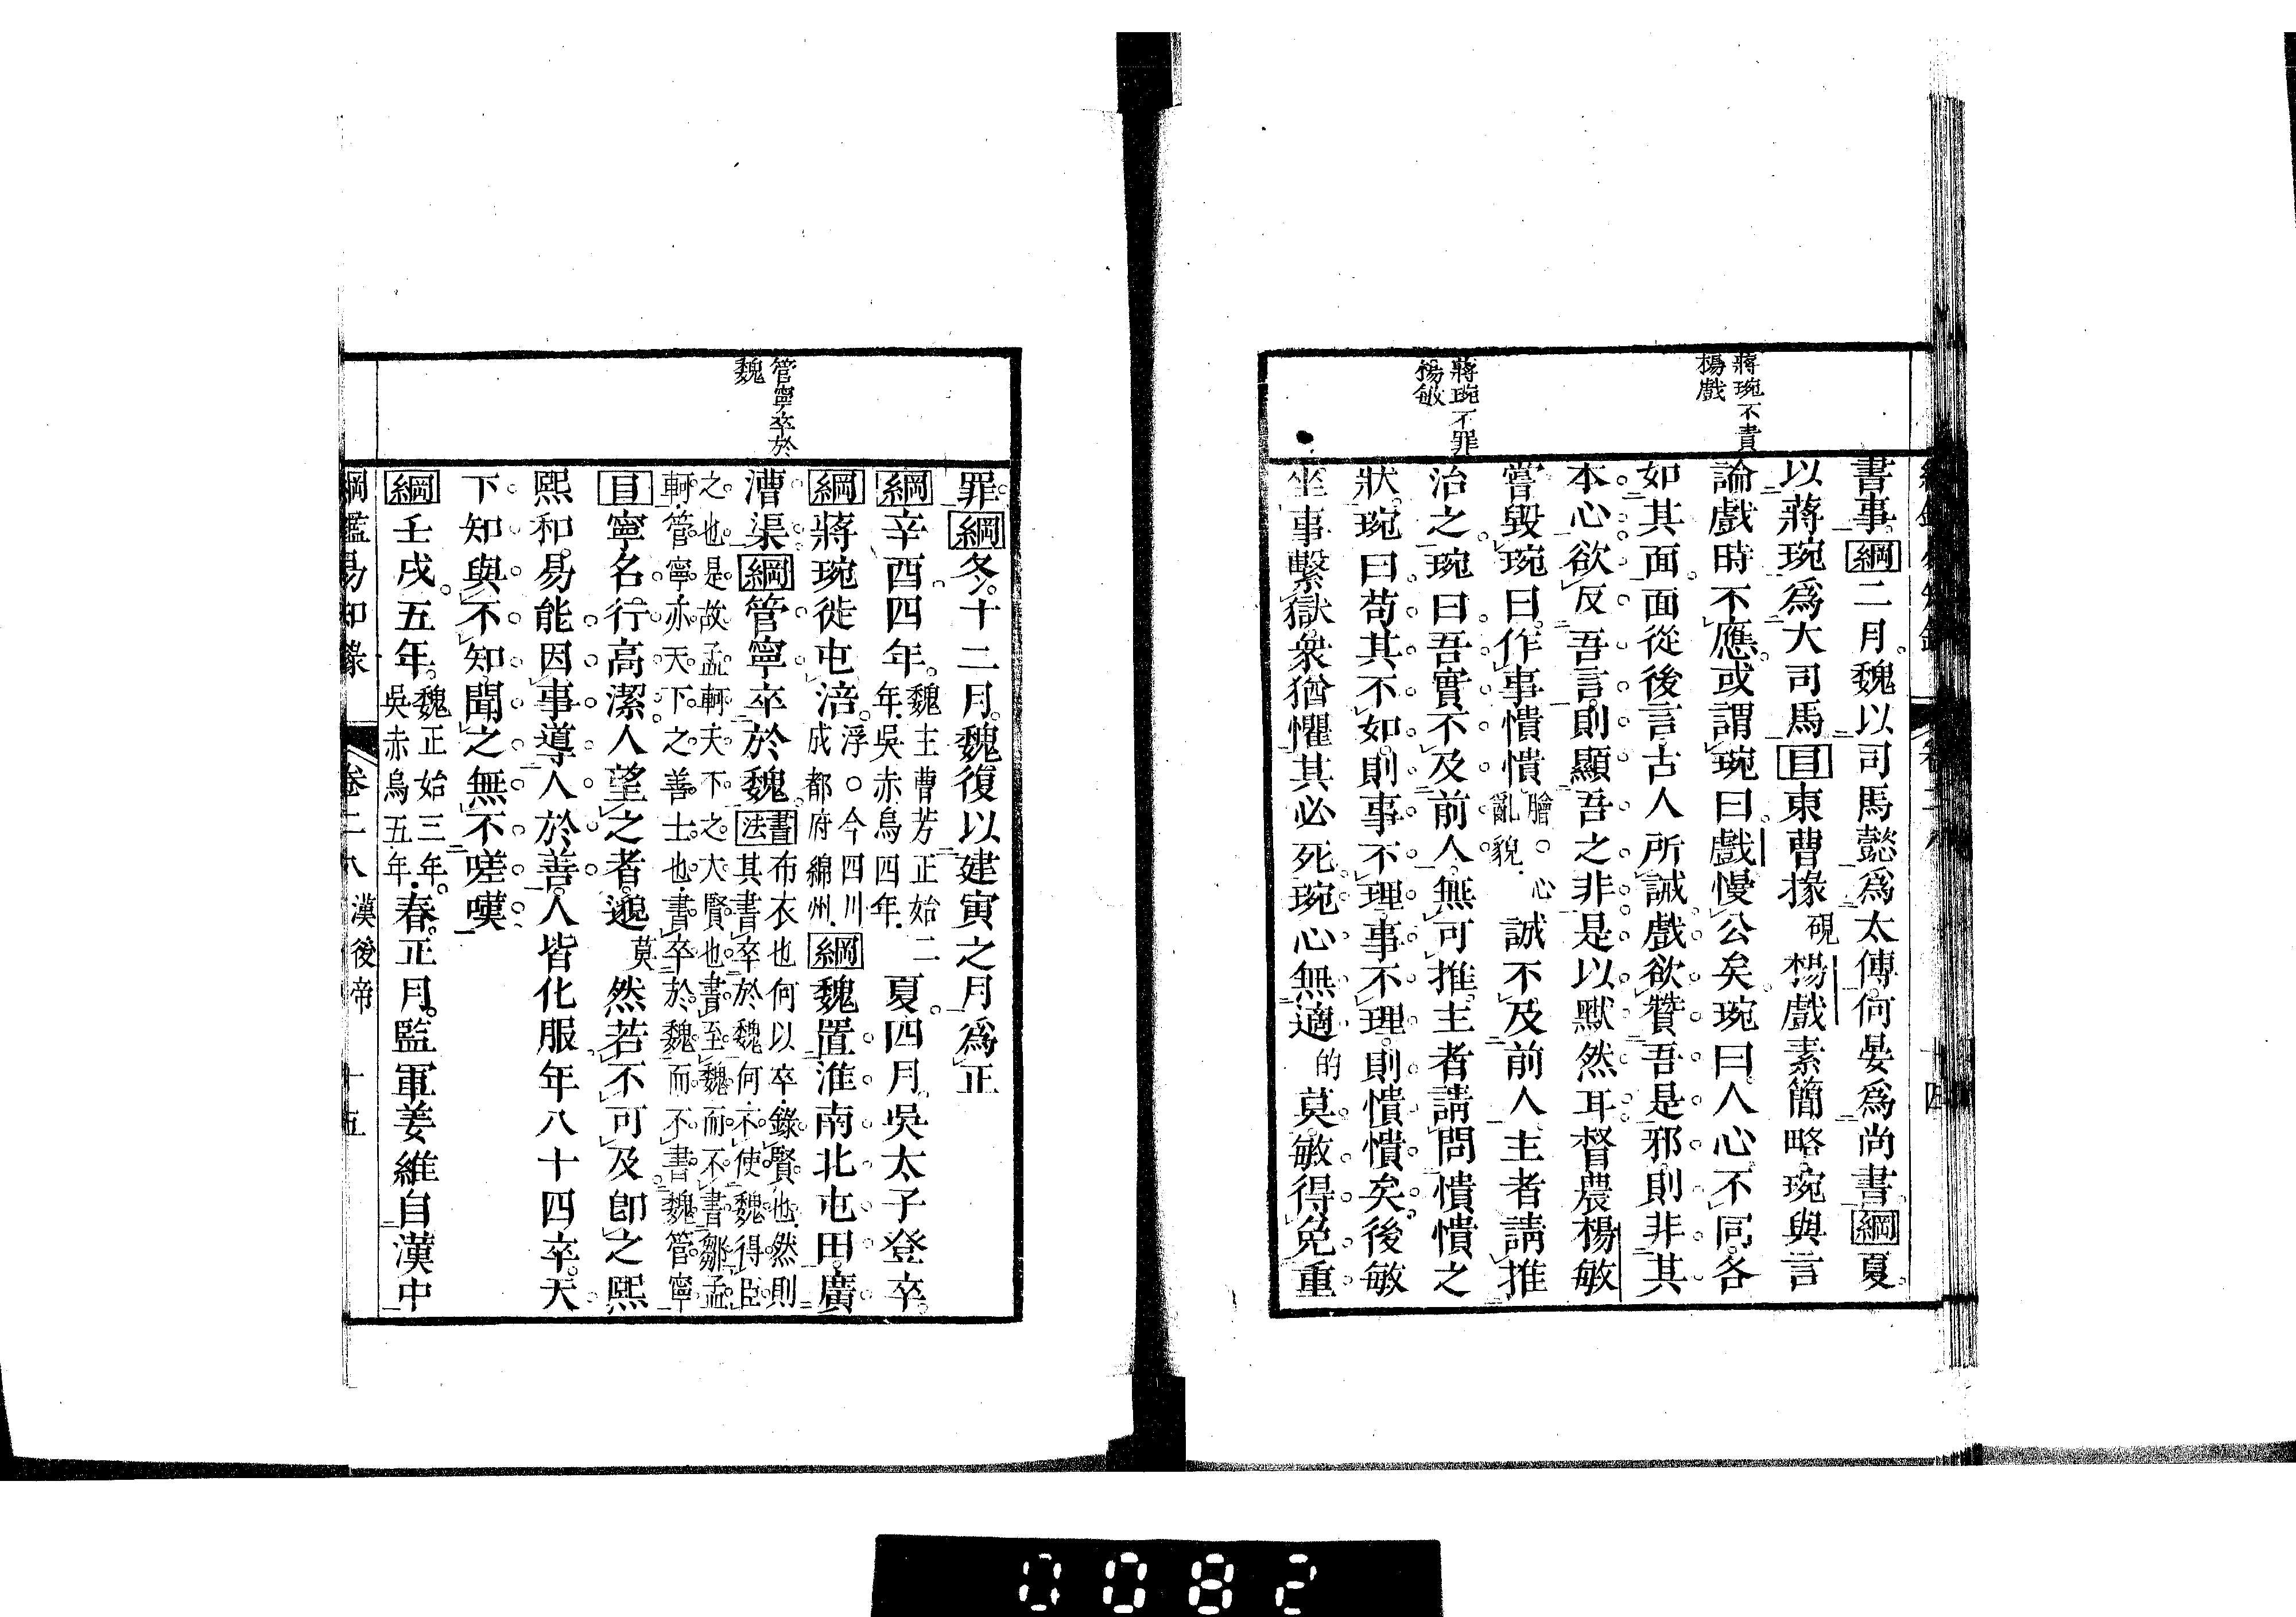 蔣琬不責
楊戲
蔣琬不罪
楊敏
書事綱二月魏以司馬懿爲太傅何晏爲尚書綱夏
以蔣琬爲大司馬目東曹掾硯楊戲素簡略琬與言
論戲時不應或謂琬曰戲慢公矣琬曰人心不同各
如其面面從後言古人所誡戲欲贊吾是邪則非其
本心欲反吾言則顯吾之非是以默然耳督農楊敏
嘗毀琬曰作事憒憒膾○心亂貌誠不及前人主者請推
治之琬曰吾實不及前人無可推主者請問憒憒之
狀琬曰苟其不如則事不理事不理則憒憒矣後敏
坐事繫獄衆猶懼其必死琬心無適的莫敏得免重
管寧卒於
魏
罪綱冬十二月魏復以建寅之月爲正
綱辛酉四年魏主曹芳正始二年吳赤烏四年夏四月吳太子登卒
綱蔣琬徙屯涪浮○今四川成都府綿州綱魏置淮南北屯田廣
漕渠綱管寧卒於魏書法布衣也何以卒錄賢也然則其書卒於魏何不使魏得臣
之也是故孟軻天下之大賢也書至魏而不書鄒孟軻管寧亦天下之善士也書卒於魏而不書魏管寧
目寧名行高潔人望之者邈莫然若不可及卽之熙
熙和易能因事導人於善人皆化服年八十四卒天
下知與不知聞之無不嗟嘆
綱壬戌五年魏正始三年吳赤烏五年春正月監軍姜維自漢中
綱鑑易知錄 卷二八 漢後帝 十五